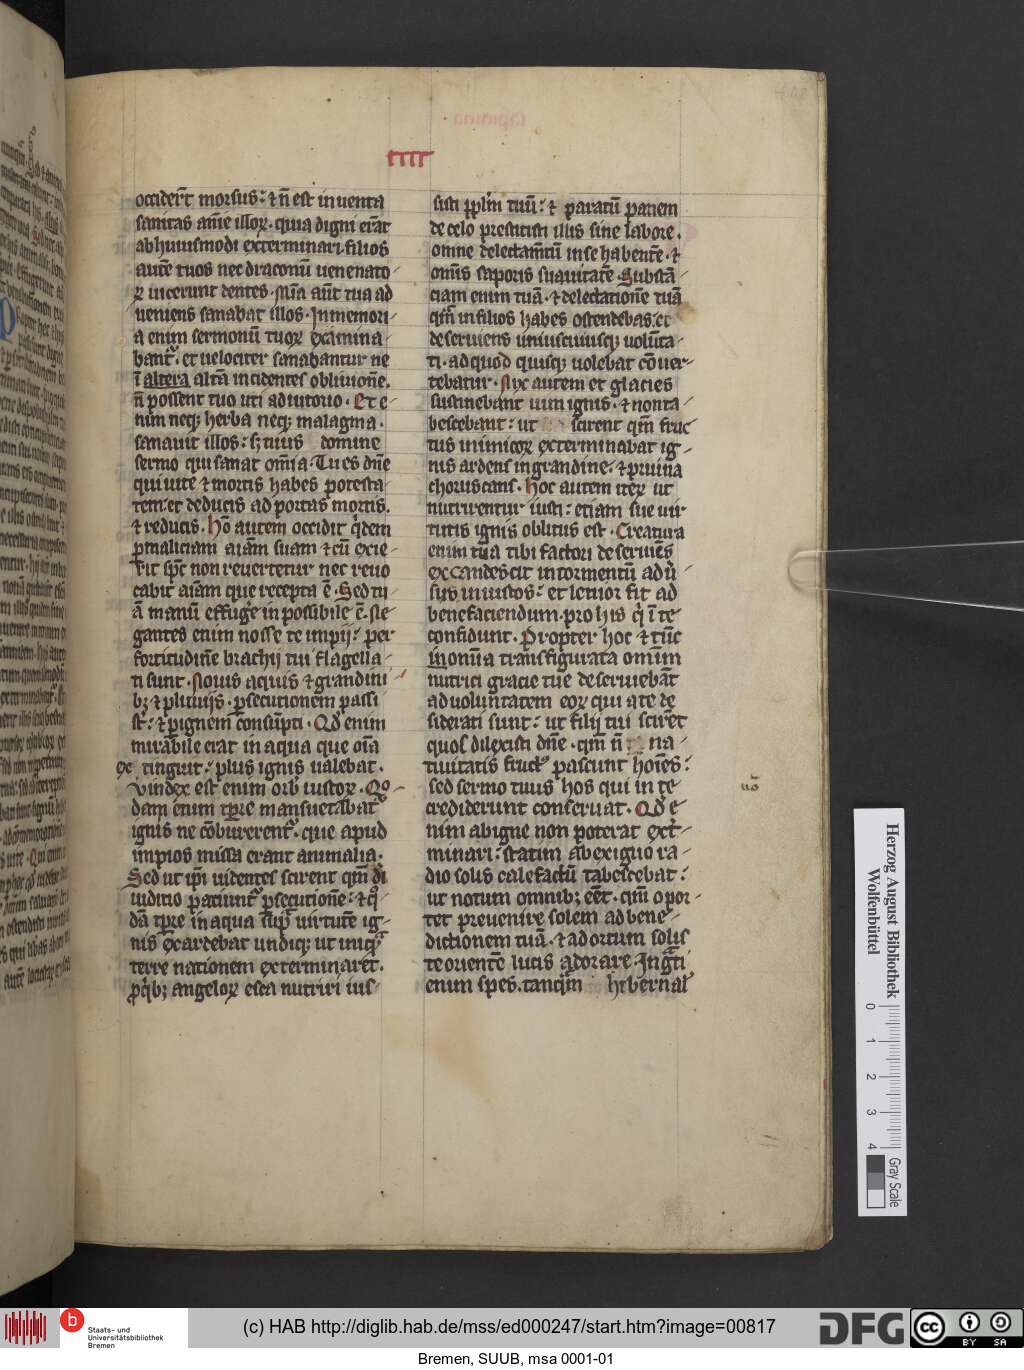 occiderūt morsus: ⁊ n̄ est inuenta
sanitas anīe illoꝝ. quia digni erāt
abhuiusmodi exterminari. filios
autē tuos nec draconū uenenato-
ꝝ uicerunt dentes. Mīa aūt tua ad
ueniens sanabat illos. In memori-
a enim sermonū tuoꝝ examina-
bantᷣ. et uelociter sanabantur ne
ī altera altā incidentes obliuionē.
n̄ possent tuo uti adiutorio. Et e-
nim neqꝫ herba neqꝫ malagma.
sanauit illos: sꝫ tuus domine
sermo qui sanat om̄ia. Tu es dn̄e
qui uite ⁊ mortis habes potesta-
tem: et deducis ad portas mortis.
⁊ reducis. Hō autem occidit qͥdem
ꝑ maliciam aīam suam ⁊ cū exie-
rit sp̄c non reuertetur nec reuo
cabit aīam que recepta ē. Sed tu
ā manū effugẽ inpossibile ē. Ne-
gantes enim nosse te impij: per
fortitudinē brachij tui flagella-
ti sunt. Nouis aquis ⁊ grandini
bꝫ ⁊ pluuijs. ꝑsecutionem passi
st̄: ⁊ ꝑ ignem consūpti. Qd̄ enim
mirabile erat in aqua que oīa
ex tinguit: plus ignis ualebat.
Vindex est enim orb̄ iustoꝝ. Qo-
dam enim tp̄re mansuetabatᷣ
ignis ne cōburerentᷣ. que apud
impios missa erant animalia.
Sed ut ip̄i uidentes scirent qm̄ di
iuditio patiuntᷣ ꝑsecutionē: ⁊ qͦ-
dā tp̄re in aqua supᷓ uirtutē ig-
nis exardebat undiqꝫ ut iniqͥ
terre nationem exterminaret.
ꝓ qͥbꝫ angeloꝝ esca nutriri iuſ-
sisti ppl̄m tuū: ⁊ paratū panem
de celo prestitisti illis sine labore.
omne delectam̄tū in se habentē. ⁊
omīs saporis suauitatē. Substā-
ciam enim tuā. ⁊ delectationē tuā
qm̄ in filios habes ostendebas: et
deseruiens uniuscuiusqꝫ uolūta-
ti. ad quod quisqꝫ uolebat cōuer-
tebatur. Nix autem et glacies
sustinebant uim ignis. ⁊ non ta-
bescebant: ut scirent qm̄ fruc
tus inimicoꝝ exterminabat ig-
nis ardens in grandine. ⁊ pruina
choruscans. Hoc autem iteꝝ ut
nutrirentur iusti: etiam sue uir-
tutis ignis oblitus est. Creatura
enim tua tibi factori deseruiēs
excandescit in tormentū adū-
sus iniustos: et leuior fit ad
benefaciendum. pro his qͥ ī te
confidunt. Propter hoc ⁊ tūc
in om̄ia transfigurata omnium
nutrici gracie tue deseruiebāt
ad uoluntatem eoꝝ qui a te de
siderati sunt: ut filij tui scirēt
quos dilexisti dn̄e. qm̄ n̄ na-
tiuitatis fructꝰ pascunt hoīes:
sed sermo tuus hos qui in te
crediderunt conseruat. Qd̄ e-
nim ab igne non poterat ext̄-
minari: statim ab exiguo ra-
dio solis calefactū tabescebat:
ut notum omnibꝫ eēt. qm̄ opor-
tet preuenire solem ad bene-
dictionem tuā. ⁊ ad ortum solis
te orientē lucis adorare. Ingᷓti
enim spes. tanqᷓm hibernal̄
Herzog August Bibliothek
Wolfenbüttel
0 1 2 3 4
Gray Scale
b
Staats- und
Universitätsbibliothek
Bremen
(c) HAB http://diglib.hab.de/mss/ed000247/start.htm?image=00817
DFG
cc BY SA
Bremen, SUUB, msa 0001-01